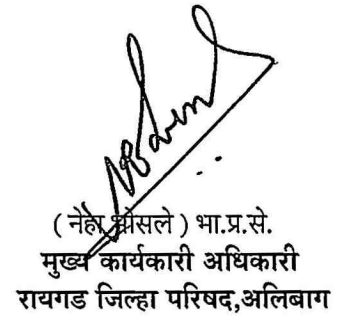 ( नेहा भोसले ) भा.प्र.से.
मुख्य कार्यकारी अधिकारी
रायगड जिल्हा परिषद,अलिबाग